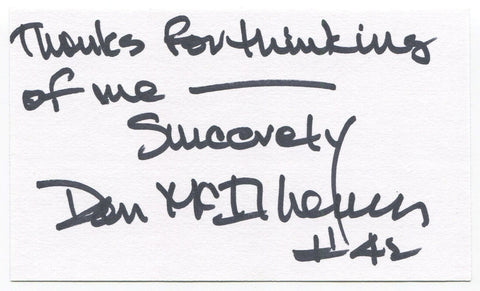 Thanks for thinking
of me —
Sincerely
Don McIlhenny
#42